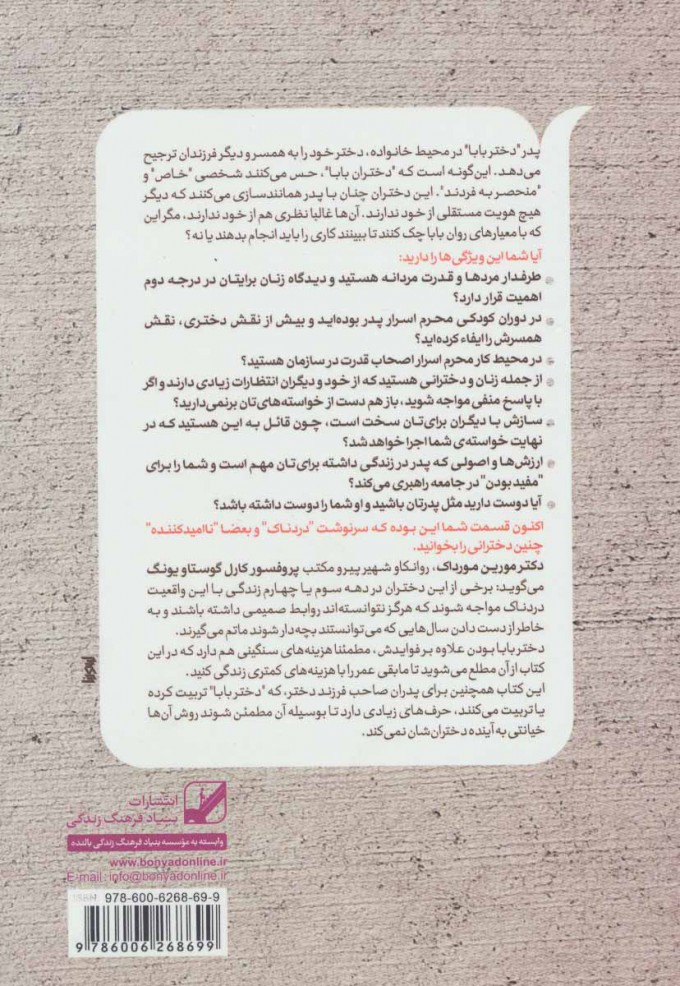 پدر "دختر بابا" در محیط خانواده، دختر خود را به همسر و دیگر فرزندان ترجیح
می‌دهد. این‌گونه است که "دختران بابا"، حس می‌کنند شخصی "خاص" و
"منحصر به فردند". این دختران چنان با پدر همانندسازی می‌کنند که دیگر
هیچ هویت مستقلی از خود ندارند. آن‌ها غالبا نظری هم از خود ندارند، مگر این
که با معیارهای روان بابا چک کنند تا ببینند کاری را باید انجام بدهند یا نه؟
آیا شما این ویژگی‌ها را دارید:
طرفدار مردها و قدرت مردانه هستید و دیدگاه زنان برایتان در درجه دوم
اهمیت قرار دارد؟
در دوران کودکی محرم اسرار پدر بوده‌اید و بیش از نقش دختری، نقش
همسرش را ایفاء کرده‌اید؟
در محیط کار محرم اسرار اصحاب قدرت در سازمان هستید؟
از جمله زنان و دخترانی هستید که از خود و دیگران انتظارات زیادی دارند و اگر
با پاسخ منفی مواجه شوید، باز هم دست از خواسته‌های‌تان برنمی‌دارید؟
سازش با دیگران برای‌تان سخت است، چون قائل به این هستید که در
نهایت خواسته‌ی شما اجرا خواهد شد؟
ارزش‌ها و اصولی که پدر در زندگی داشته برای‌تان مهم است و شما را برای
"مفید بودن" در جامعه راهبری می‌کند؟
آیا دوست دارید مثل پدرتان باشید و او شما را دوست داشته باشد؟
اکنون قسمت شما این بوده که سرنوشت "دردناک" و بعضا "ناامیدکننده"
چنین دخترانی را بخوانید.
دکتر مورین مورداک، روانکاو شهیر پیرو مکتب پروفسور کارل گوستاو یونگ
می‌گوید: برخی از این دختران در دهه سوم یا چهارم زندگی با این واقعیت
دردناک مواجه شوند که هرگز نتوانسته‌اند روابط صمیمی داشته باشند و به
خاطر از دست دادن سال‌هایی که می‌توانستند بچه‌دار شوند ماتم می‌گیرند.
دختر بابا بودن علاوه بر فوایدش، مطمئنا هزینه‌های سنگینی هم دارد که در این
کتاب از آن مطلع می‌شوید تا مابقی عمر را با هزینه‌های کمتری زندگی کنید.
این کتاب همچنین برای پدران صاحب فرزند دختر، که "دختر بابا" تربیت کرده
یا تربیت می‌کنند، حرف‌های زیادی دارد تا بوسیله آن مطمئن شوند روش آن‌ها
خیانتی به آینده دختران‌شان نمی‌کند.
انتشارات
بنیاد فرهنگ زندگی
وابسته به مؤسسه بنیاد فرهنگ زندگی بالنده
www.bonyadonline.ir
E-mail: info@bonyadonline.ir
ISBN: 978-600-6268-69-9
9 786006 268699